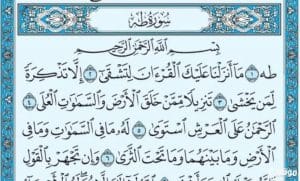 سُورَةُ طه
بِسْمِ ٱللَّهِ ٱلرَّحْمَٰنِ ٱلرَّحِيمِ
طه ١ مَآ أَنزَلْنَا عَلَيْكَ ٱلْقُرْءَانَ لِتَشْقَىٰٓ ٢ إِلَّا تَذْكِرَةً
لِّمَن يَخْشَىٰ ٣ تَنزِيلًا مِّمَّنْ خَلَقَ ٱلْأَرْضَ وَٱلسَّمَٰوَٰتِ ٱلْعُلَى ٤
ٱلرَّحْمَٰنُ عَلَى ٱلْعَرْشِ ٱسْتَوَىٰ ٥ لَهُۥ مَا فِى ٱلسَّمَٰوَٰتِ وَمَا فِى
ٱلْأَرْضِ وَمَا بَيْنَهُمَا وَمَا تَحْتَ ٱلثَّرَىٰ ٦ وَإِن تَجْهَرْ بِٱلْقَوْلِ